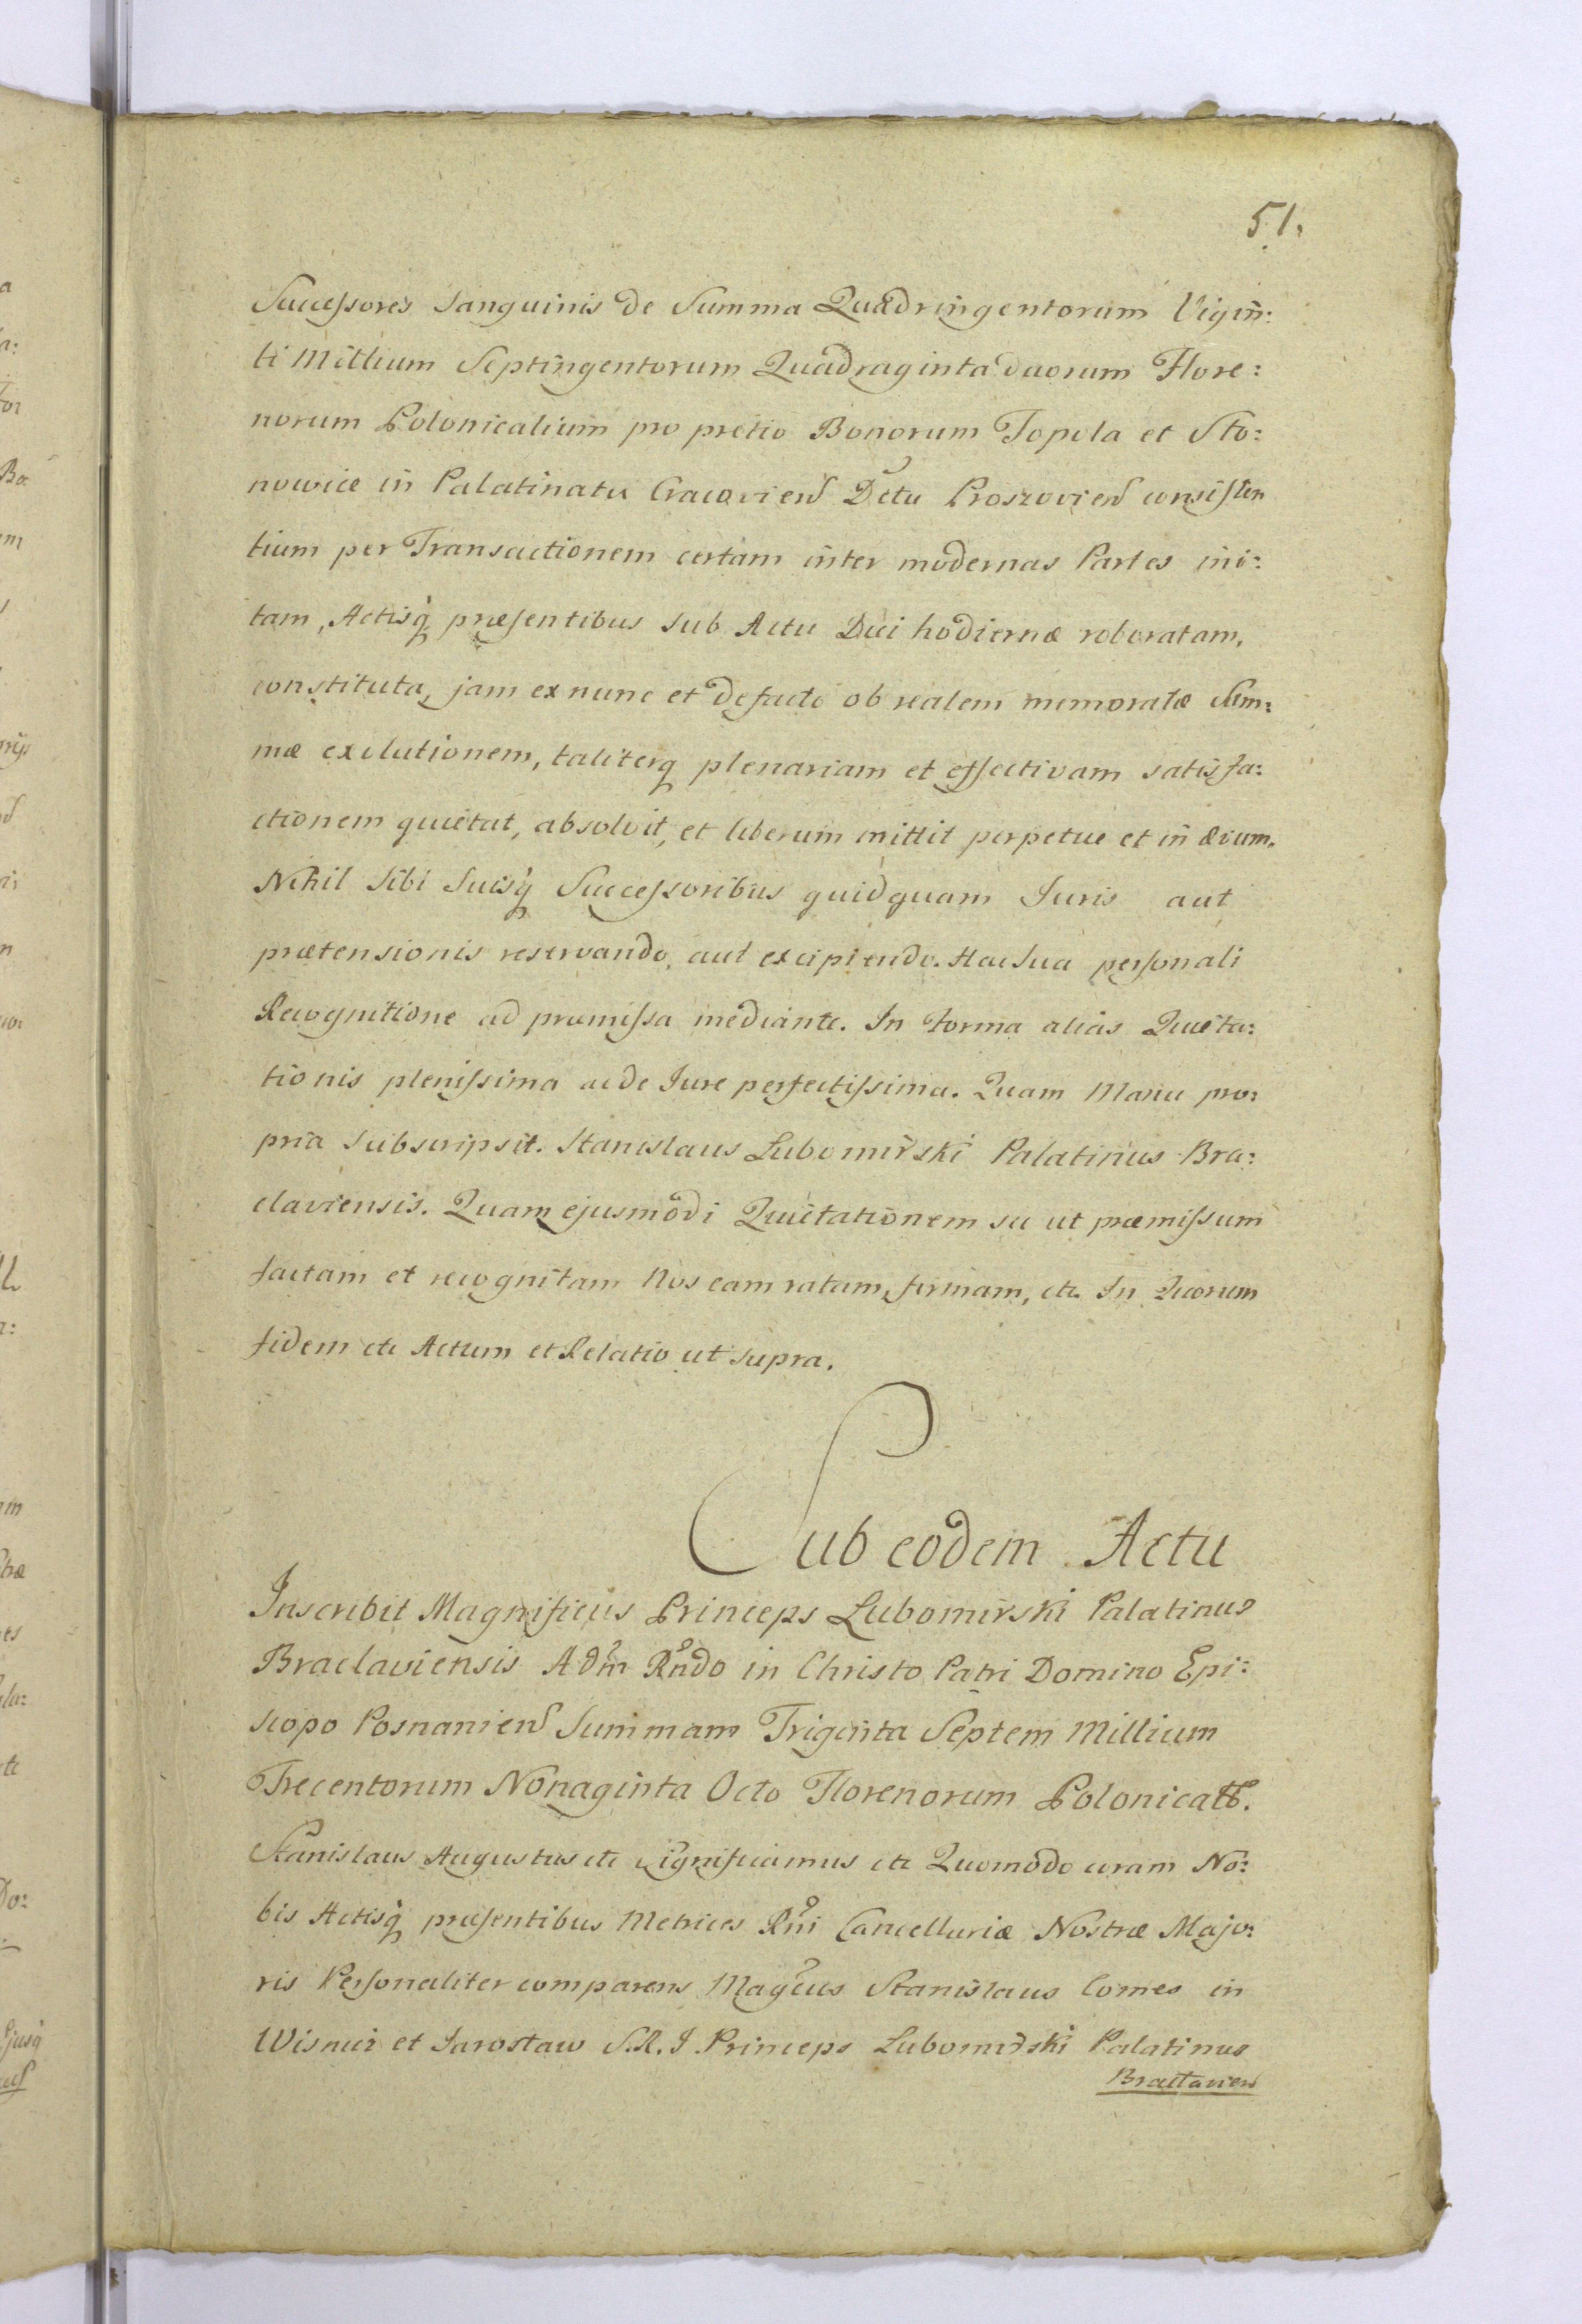 51.
Successores sanguinis de Summa Quadringentorum Vigin:
ti Millium Septingentorum Quadraginta duorum Flore:
norum Polonicalium pro pretio Bonorum Topola et Sto:
nowice in Palatinatu Cracovien Dctu Proszovien consisten
tium per Transactionem certam inter modernas Partes ini:
tam, Actisq̀ præsentibus sub Actu Diei hodiernæ roboratam,
constituta, jam ex nunc et defacto ob realem memoratæ Sum:
mæ exolutionem, taliterq plenariam et effectivam satisfa:
ctionem quietat, absolvit, et liberum mittit perpetue et in ævum.
Nihil sibi suisq̀ Successoribus quidquam Juris aut
prætensionis reservando aut excipiendo. Hac sua personali
Recognitione ad præmissa mediante. In forma alias Quieta:
tionis plenissima ac de Jure perfectissima. Quam Manu pro:
pria subscripsit. Stanislaus Lubomirski Palatinus Bra:
claviensis. Quam ejusmodi Quietationem sic ut præmissum
factam et recognitam Nos eam ratam, firmam, etc. In Quorum
fidem etc Actum et Relatio ut supra.
Sub eodem Actu
Inscribit Magnificus Princeps Lubomirski Palatinus
Braclaviensis Adm Rndo in Christo Patri Domino Epi:
scopo Posnanien Summam Triginta Septem Millium
Trecentorum Nonaginta Octo Florenorum Polonicall.
Stanislaus Augustus etc Significamus etc Quomodo coram No:
bis Actisq̀ præsentibus Metrices Rni Cancellariæ Nostræ Majo:
ris Personaliter comparens Magcus Stanislaus Comes in
Wisnicz et Jarosław S.R.I Princeps Lubomirski Palatinus
Braclavien